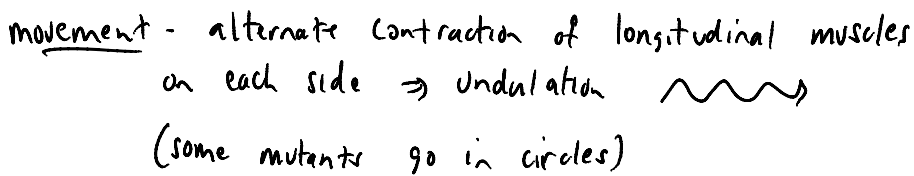 movement - alternate contraction of longitudinal muscles
on each side ⇒ undulation
(some mutants go in circles)